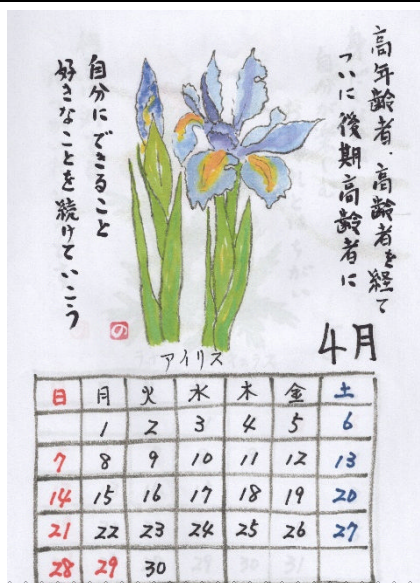 高年齢者、高齢者を経て
ついに後期高齢者に
自分にできること
好きなことを続けていこう
の
アイリス
4月
日 月 火 水 木 金 土
1 2 3 4 5 6
7 8 9 10 11 12 13
14 15 16 17 18 19 20
21 22 23 24 25 26 27
28 29 30